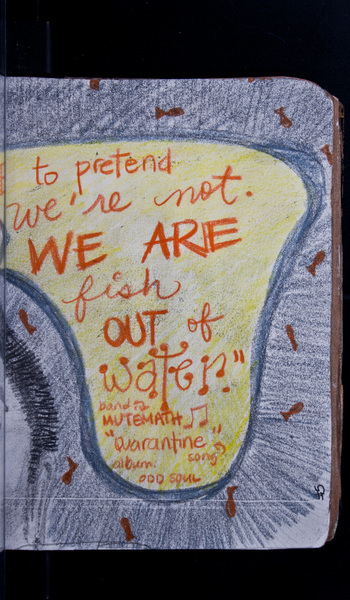 to pretend
we're not.
WE ARE
fish
OUT of
water."
band →
MUTEMATH
"quarantine"
song
album:
ODD SOUL